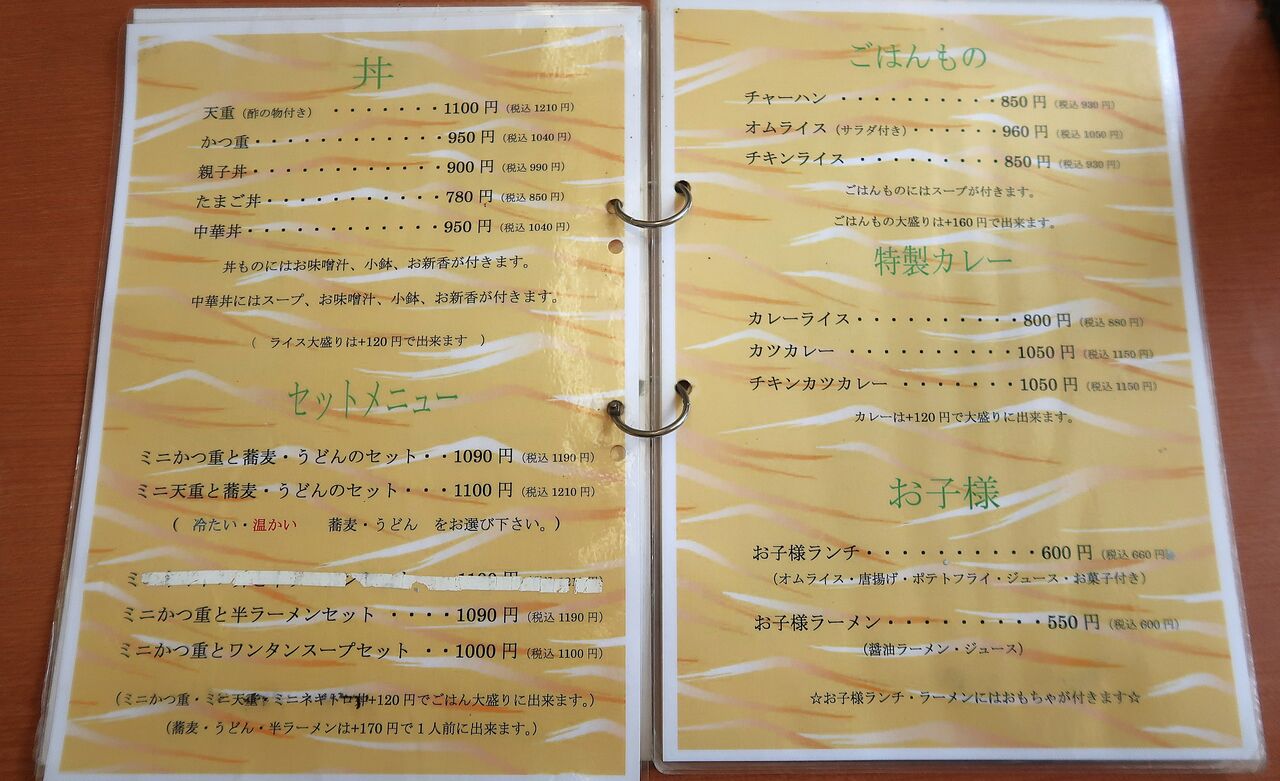 丼
天重（酢の物付き） ・・・・・・・1100 円（税込 1210 円）
かつ重・・・・・・・・・・・・950 円（税込 1040 円）
親子丼・・・・・・・・・・・・900 円（税込 990 円）
たまご丼・・・・・・・・・・・780 円（税込 850 円）
中華丼・・・・・・・・・・・・950 円（税込 1040 円）
丼ものにはお味噌汁、小鉢、お新香が付きます。
中華丼にはスープ、お味噌汁、小鉢、お新香が付きます。
（　ライス大盛りは+120 円で出来ます　）
セットメニュー
ミニかつ重と蕎麦・うどんのセット・・1090 円（税込 1190 円）
ミニ天重と蕎麦・うどんのセット・・・1100 円（税込 1210 円）
（　冷たい・温かい　　蕎麦・うどん　をお選び下さい。）
ミニかつ重と半ラーメンセット ・・・・1090 円（税込 1190 円）
ミニかつ重とワンタンスープセット ・・1000 円（税込 1100 円）
（ミニかつ重・ミニ天重・ミニネギトロ丼+120 円でごはん大盛りに出来ます。）
（蕎麦・うどん・半ラーメンは+170 円で 1 人前に出来ます。）
ごはんもの
チャーハン ・・・・・・・・・・850 円（税込 930 円）
オムライス（サラダ付き）・・・・・・960 円（税込 1050 円）
チキンライス ・・・・・・・・・850 円（税込 930 円）
ごはんものにはスープが付きます。
ごはんもの大盛りは+160 円で出来ます。
特製カレー
カレーライス・・・・・・・・・・800 円（税込 880 円）
カツカレー ・・・・・・・・・・1050 円（税込 1150 円）
チキンカツカレー ・・・・・・・1050 円（税込 1150 円）
カレーは+120 円で大盛りに出来ます。
お子様
お子様ランチ・・・・・・・・・・600 円（税込 660 円）
（オムライス・唐揚げ・ポテトフライ・ジュース・お菓子付き）
お子様ラーメン・・・・・・・・・550 円（税込 600 円）
（醤油ラーメン・ジュース）
☆お子様ランチ・ラーメンにはおもちゃが付きます☆